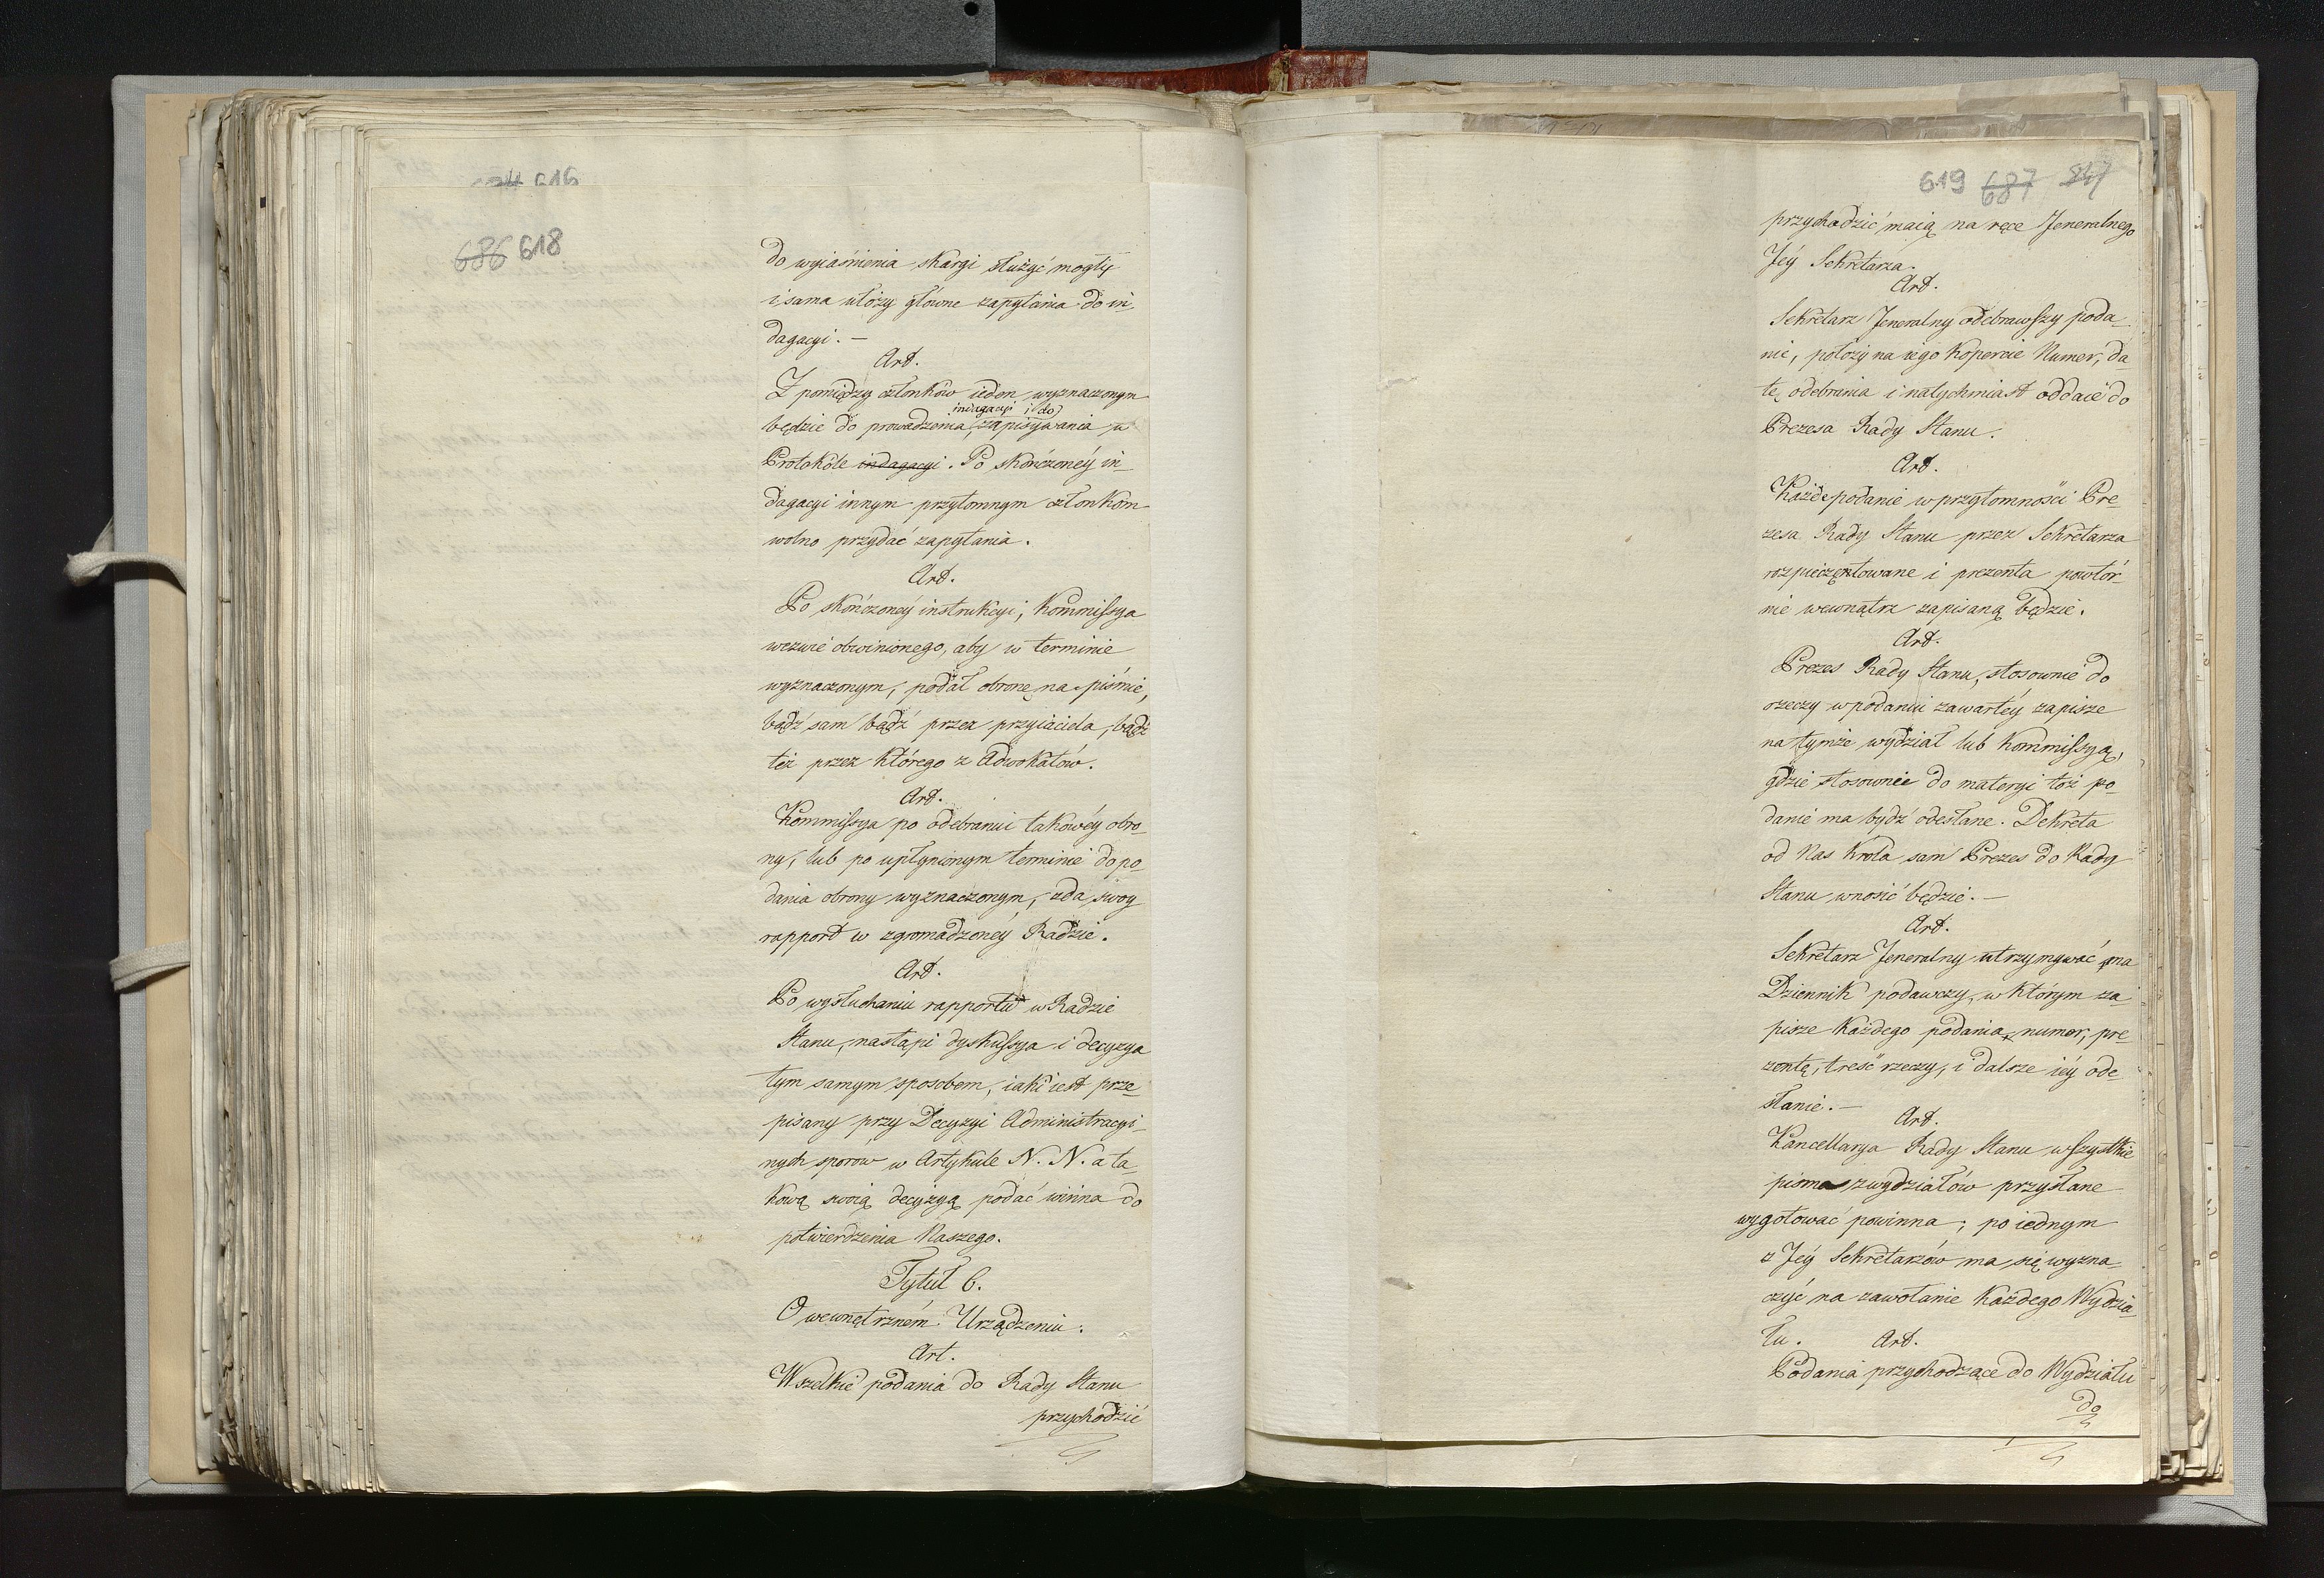 616
686 618
do wyiaśnienia skargi służyć mogły
i sama ułoży główne zapytania do in_
dagacyi. —
Art.
Z pomiędzy członków ieden wyznaczonym
indagacyi i do
będzie do prowadzenia zapisywania w
Protokóle indagacyi. Po skończoney in_
dagacyi innym przytomnym członkom
wolno przydać zapytania.
Art.
Po skończoney instrukcyi, Kommissya
wezwie obwinionego, aby w terminie
wyznaczonym, podał obronę na piśmie,
bądź sam bądź przez przyiaciela, bądź
też przez którego z Adwokatów.
Art.
Kommissya po odebraniu takowéy obro_
ny, lub po upłynionym terminie do po_
dania obrony wyznaczonym, zda swoy
rapport w zgromadzonéy Radzie.
Art.
Po wysłuchaniu rapportu w Radzie
Stanu, nastąpi dyskussya i decyzya
tym samym sposobem, iaki iest prze_
pisany przy Decyzyi Administracyi_
nych sporów w Artykule N. N. a ta_
kową swoią decyzyą podać winna do
potwierdzenia Naszego.
Tytuł 6.
O wewnętrzném Urządzeniu.
Art.
Wszelkie podania do Rady Stanu
przychodzić
619 687
przychodzić maią na ręce Jeneralnego
Jéy Sekretarza.
Art.
Sekretarz Jeneralny odebrawszy poda_
nie, położy na iego kopercie Numer, da_
tę odebrania i natychmiast oddaie do
Prezesa Rady Stanu.
Art.
Każde podanie w przytomności Pre_
zesa Rady Stanu przez Sekretarza
rozpieczętowane i prezenta powtór_
nie wewnątrz zapisaną będzie.
Art.
Prezes Rady Stanu, stosownie do
rzeczy w podaniu zawartéy zapisze
na tymże wydział lub Kommissyą,
gdzie stosownie do materyi toż po_
danie ma bydź odesłane. Dekreta
od Nas Króla sam Prezes do Rady
Stanu wnosić będzie. —
Art.
Sekretarz Jeneralny utrzymywać ma
Dziennik podawczy, w którym za_
pisze każdego podania numer, pre_
zentę, treść rzeczy, i dalsze iéy ode_
słanie. —
Art.
Kancellarya Rady Stanu wszystkie
pisma z wydziałów przysłane
wygotować powinna; po iednym
z Jéy Sekretarzów ma się wyzna_
czyć na zawołanie każdego Wydzia_
łu. Art.
Podania przychodzące do Wydziału
do